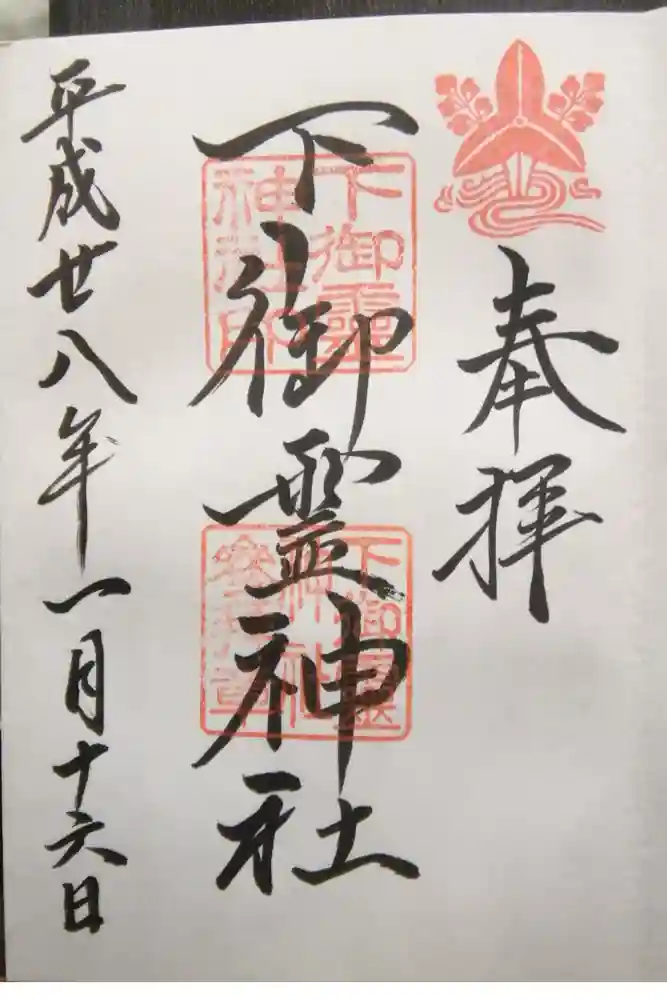 奉拝
下御霊神社
下御靈
神社印
下御靈
神社
平成廿八年一月十六日